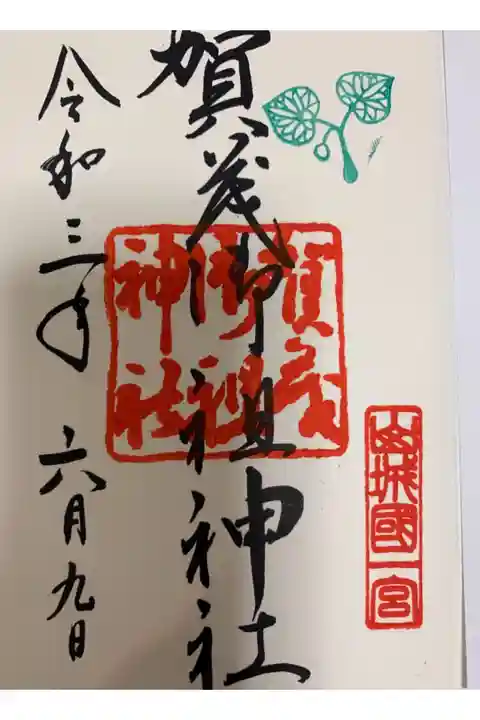 山城國一宮
賀茂御祖神社
賀茂
御祖
神社
令和三年 六月九日